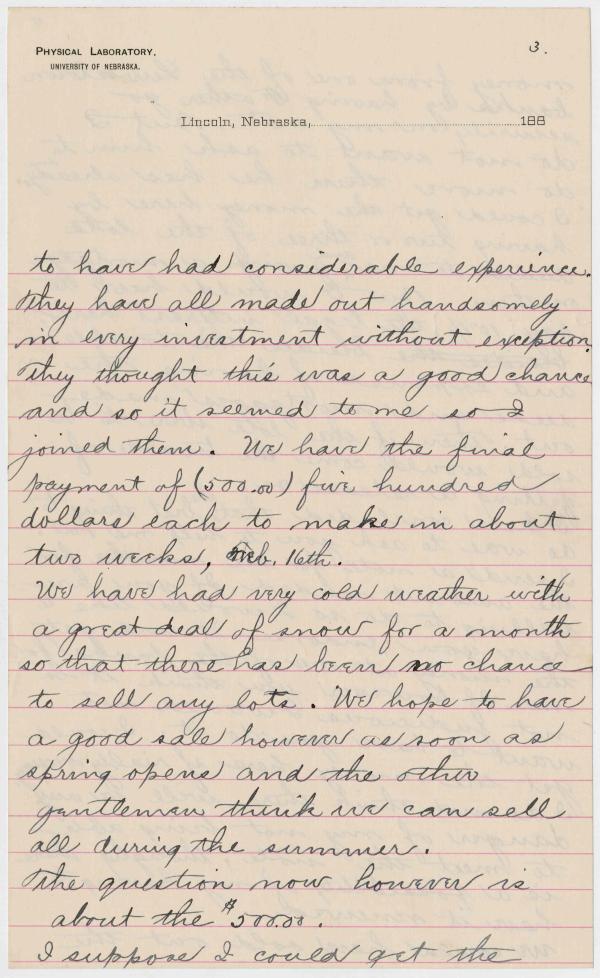 PHYSICAL LABORATORY,
UNIVERSITY OF NEBRASKA.
3.
Lincoln, Nebraska, 188
to have had considerable experience.
They have all made out handsomely
in every investment without exception.
They thought this was a good chance
and so it seemed to me so I
joined them. We have the final
payment of (500.00) five hundred
dollars each to make in about
two weeks, Feb. 16th.
We have had very cold weather with
a great deal of snow for a month
so that there has been no chance
to sell any lots. We hope to have
a good sale however as soon as
spring opens and the other
gentleman think we can sell
all during the summer.
The question now however is
about the $500.00.
I suppose I could get the